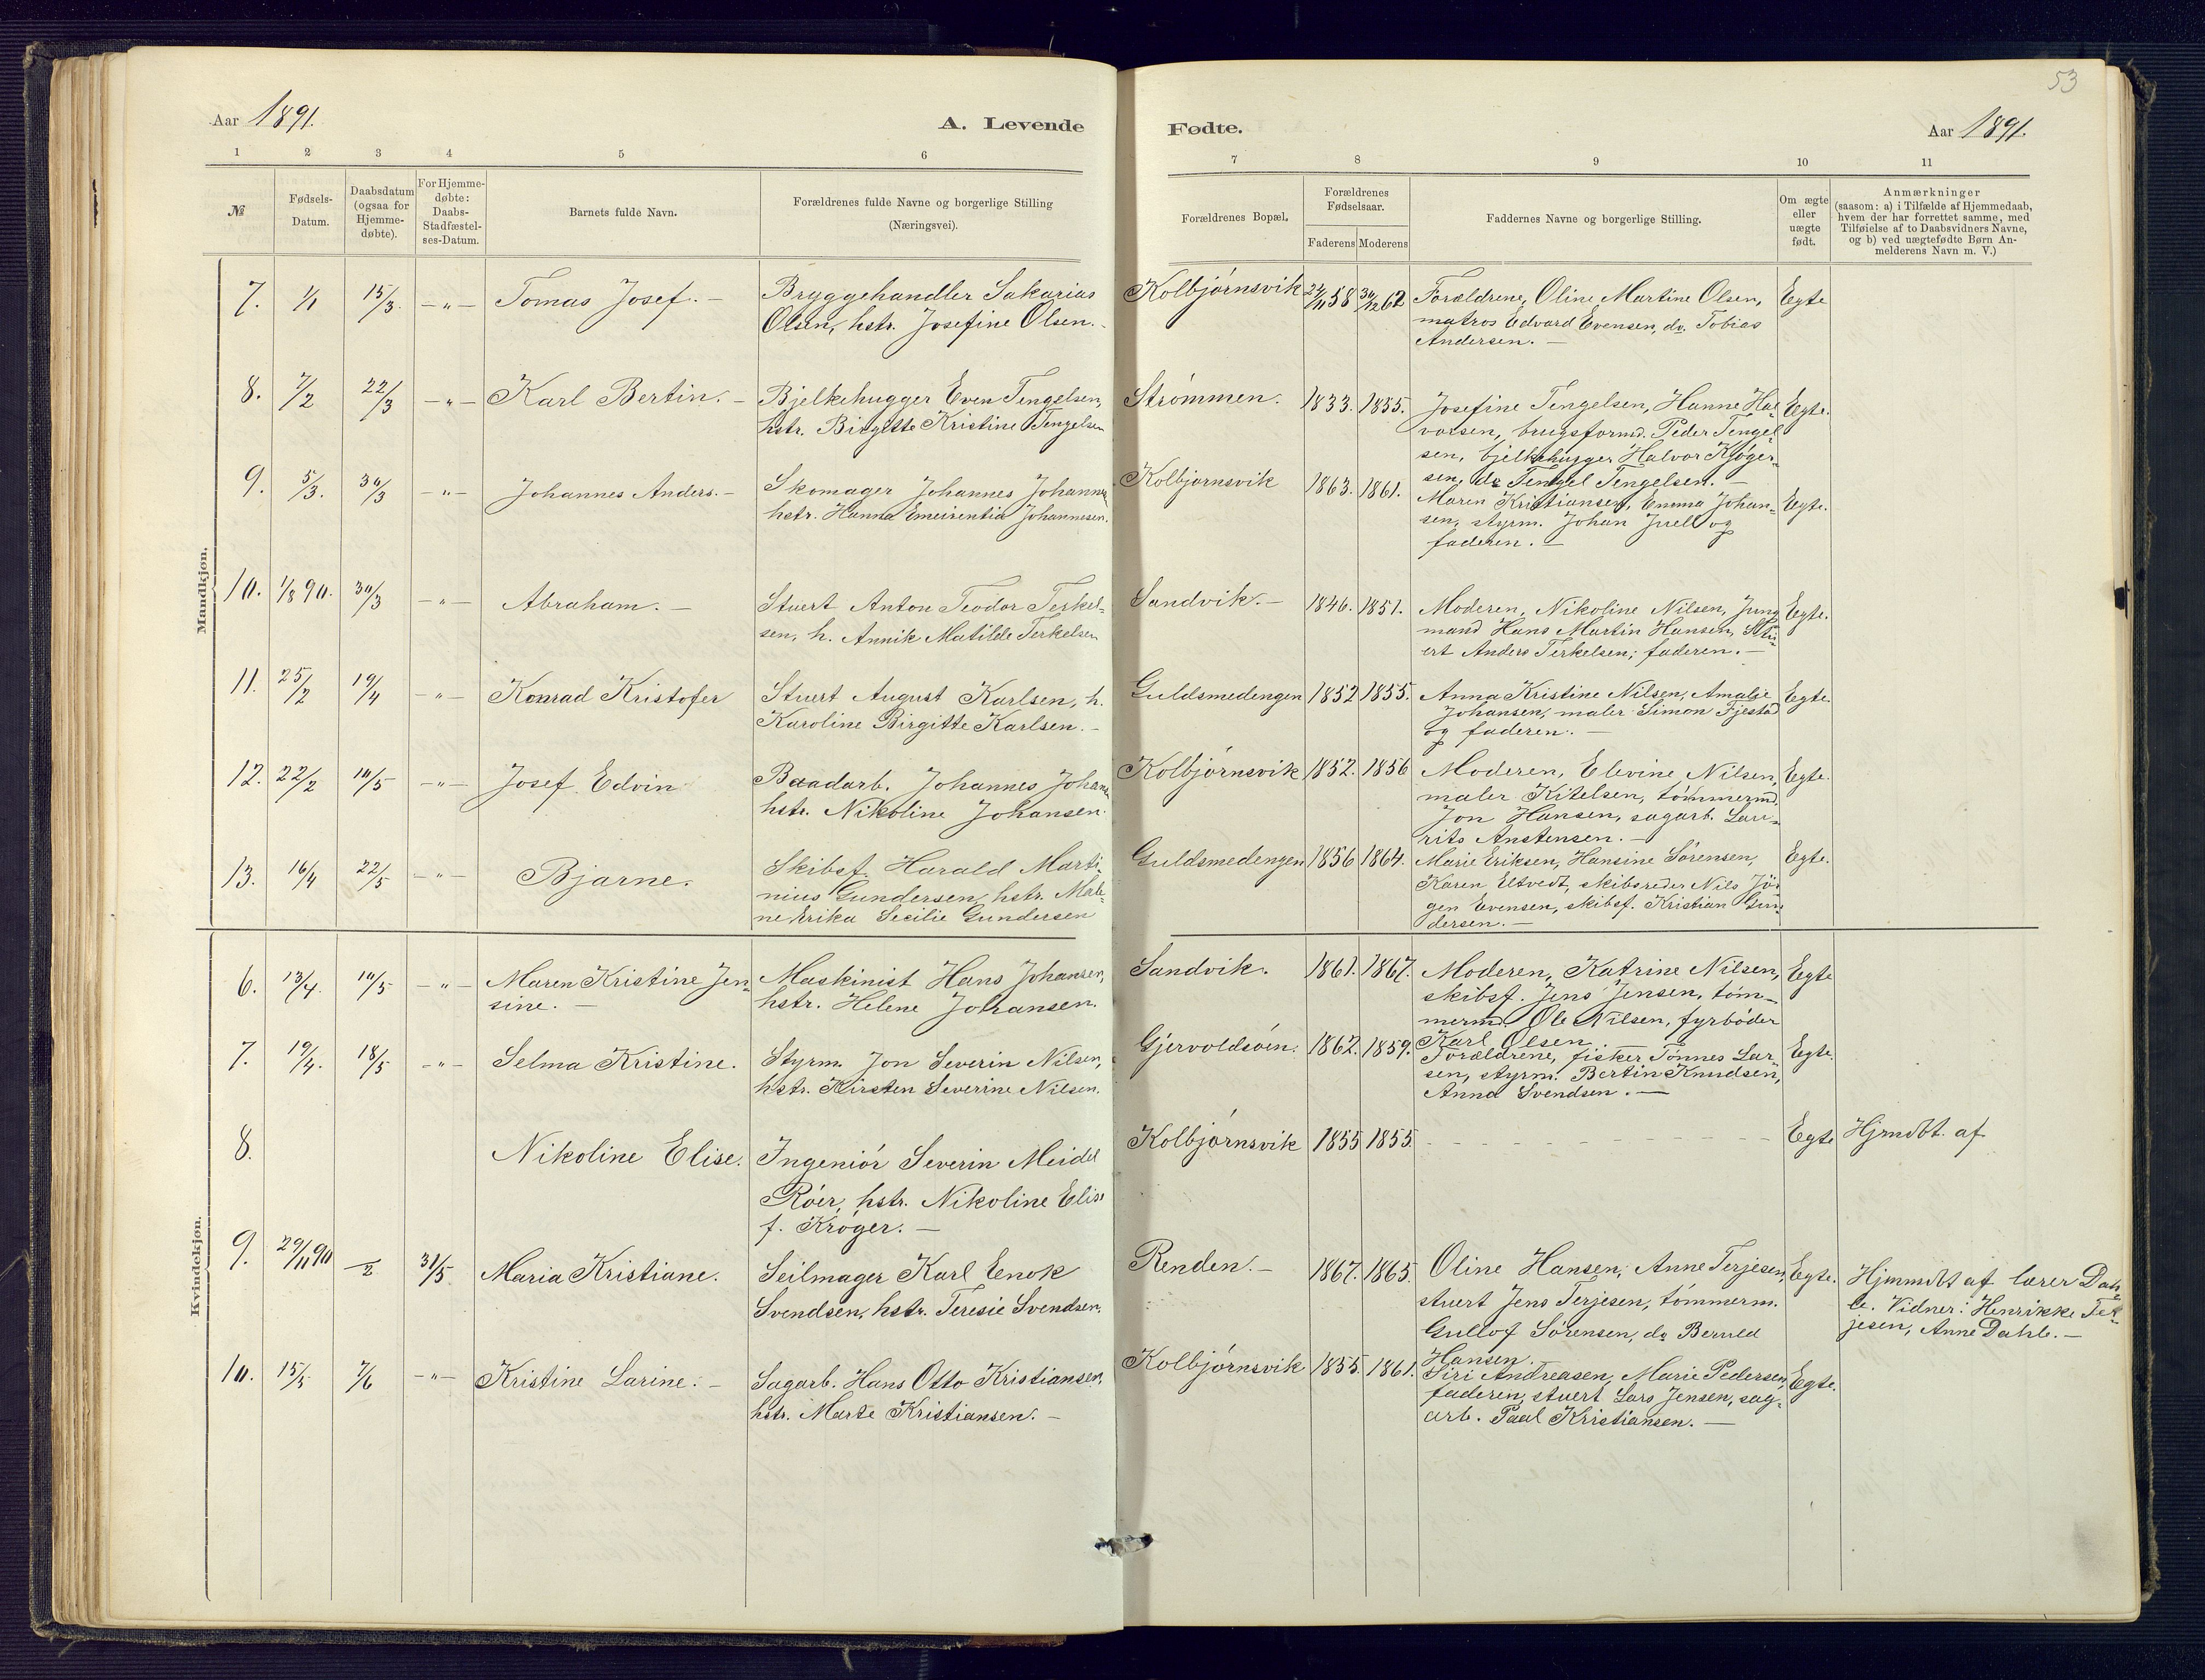 53
Aar 1891.
A. Levende
Fødte.
Aar 1891.
1 2 3 4 5 6 7 8 9 10 11
№
Fødsels-
Datum.
Daabsdatum
(ogsaa for
Hjemme-
døbte).
For Hjemme-
døbte:
Daabs-
Stadfæstel-
ses-Datum.
Barnets fulde Navn.
Forældrenes fulde Navne og borgerlige Stilling
(Næringsvei).
Forældrenes Bopæl.
Forældrenes
Fødselsaar.
Faderens Moderens
Faddernes Navne og borgerlige Stilling.
Om ægte
eller
uægte
født.
Anmærkninger
(saasom: a) i Tilfælde af Hjemmedaab,
hvem der har forrettet samme, med
Tilføielse af to Daabsvidners Navne,
og b) ved uægtefødte Børn An-
melderens Navn m. V.)
Mandkjøn.
7. 1/1 15/3. -"- Tomas Josef. -
Bryggehandler Sakarias
Olsen, hstr. Josefine Olsen. -
Kolbjørnsvik 24/11 58 30/12 62
Forældrene, Oline Martine Olsen,
matros Edvard Evensen, do. Tobias
Andersen. -
Egte
8. 7/2 22/3 -"- Karl Bertin. -
Bjelkehugger Even Tengelsen,
hstr. Birgitte Kristine Tengelsen
Strømmen. 1833. 1855.
Josefine Tengelsen, Hanne Hal-
vorsen, brugsformd. Peder Tengel-
sen, bjelkehugger Halvor Kjøger-
sen, do Tengel Tengelsen. -
Egte.
9. 5/3. 30/3 -"- Johannes Anders. -
Skomager Johannes Johannes
hstr. Hanna Emeirentia Johannesen.
Kolbjørnsvik 1863. 1861.
Maren Kristiansen, Emma Johan-
sen, styrm. Johan Juell og
faderen. -
Egte.
10. 1/8 90. 30/3 -"- Abraham. -
Stuert Anton Teodor Terkel-
sen, h. Annik Matilde Terkelsen
Sandvik. - 1846. 1851.
Moderen, Nikoline Nilsen, Jung
mand Hans Martin Hansen, Stu-
ert Anders Terkelsen; faderen. -
Egte.
11. 25/2 19/4 -"- Konrad Kristofer
Stuert August Karlsen, h.
Karoline Birgitte Karlsen. -
Guldsmedengen 1852 1855.
Anna Kristine Nilsen, Amalie
Johansen, maler Simon Fjestad
og faderen. -
Egte.
12. 22/2 10/5 -"- Josef Edvin
Baadarb. Johannes Johansen
hstr. Nikoline Johansen.
Kolbjørnsvik 1852. 1856
Moderen, Elevine Nilsen,
maler Kitelsen, tømmermd.
Jon Hansen, sagarb. Lau-
rits Anstensen. -
Egte.
13. 16/4 22/5 -"- Bjarne.
Skibsf. Harald Marti-
nius Gundersen, hstr. Mali-
ne Erika Secilie Gundersen
Guldsmedengen 1856 1864.
Marie Eriksen, Hansine Sørensen,
Karen Eltvedt, skibsreder Nils Jør
gen Evensen, skibsf. Kristian Gun
dersen. -
Egte.
Kvindekjøn.
6. 13/4. 10/5 -"- Maren Kristine Jen-
sine. -
Maskinist Hans Johansen,
hstr. Helene Johansen.
Sandvik. 1861. 1867.
Moderen, Katrine Nilsen,
skibsf. Jens Jensen, tøm-
mermd. Ole Nilsen, fyrbøder
Karl Olsen
Egte
7. 19/4. 18/5 -"- Selma Kristine.
Styrm. Jon Severin Nilsen,
hstr. Kirsten Severine Nilsen.
Gjervoldsøen. 1862. 1859.
Forældrene, fisker Tønnes Lar
sen, styrm. Bertin Knudsen,
Anna Svendsen. -
Egte.
8. Nikoline Elise.
Ingeniør Severin Meidel
Róer, hstr. Nikoline Elise
f. Krøger. -
Kolbjørnsvik 1855 1855.
Egte
Hjmdbt. af
9. 29/11 90 -/2 31/5 Maria Kristiane.
Seilmager Karl Enok
Svendsen, hstr. Teresie Svendsen.
Renden. - 1867. 1865.
Oline Hansen, Anne Terjesen,
stuert Jens Terjesen, tømmerm.
Gullof Sørensen, do Beruld
Hansen.
Egte.
Hjmmdbt af lærer Dah-
le. Vidner: Henrikke Ter-
jesen, Anne Dahle. -
10. 15/5 7/6 -"- Kristine Larine. -
Sagarb. Hans Otto Kristiansen,
hstr. Marte Kristiansen. -
Kolbjørnsvik 1855. 1861.
Siri Andreasen, Marie Pedersen,
faderen, stuert Lars Jensen, sag-
arb. Paal Kristiansen. -
Egte.